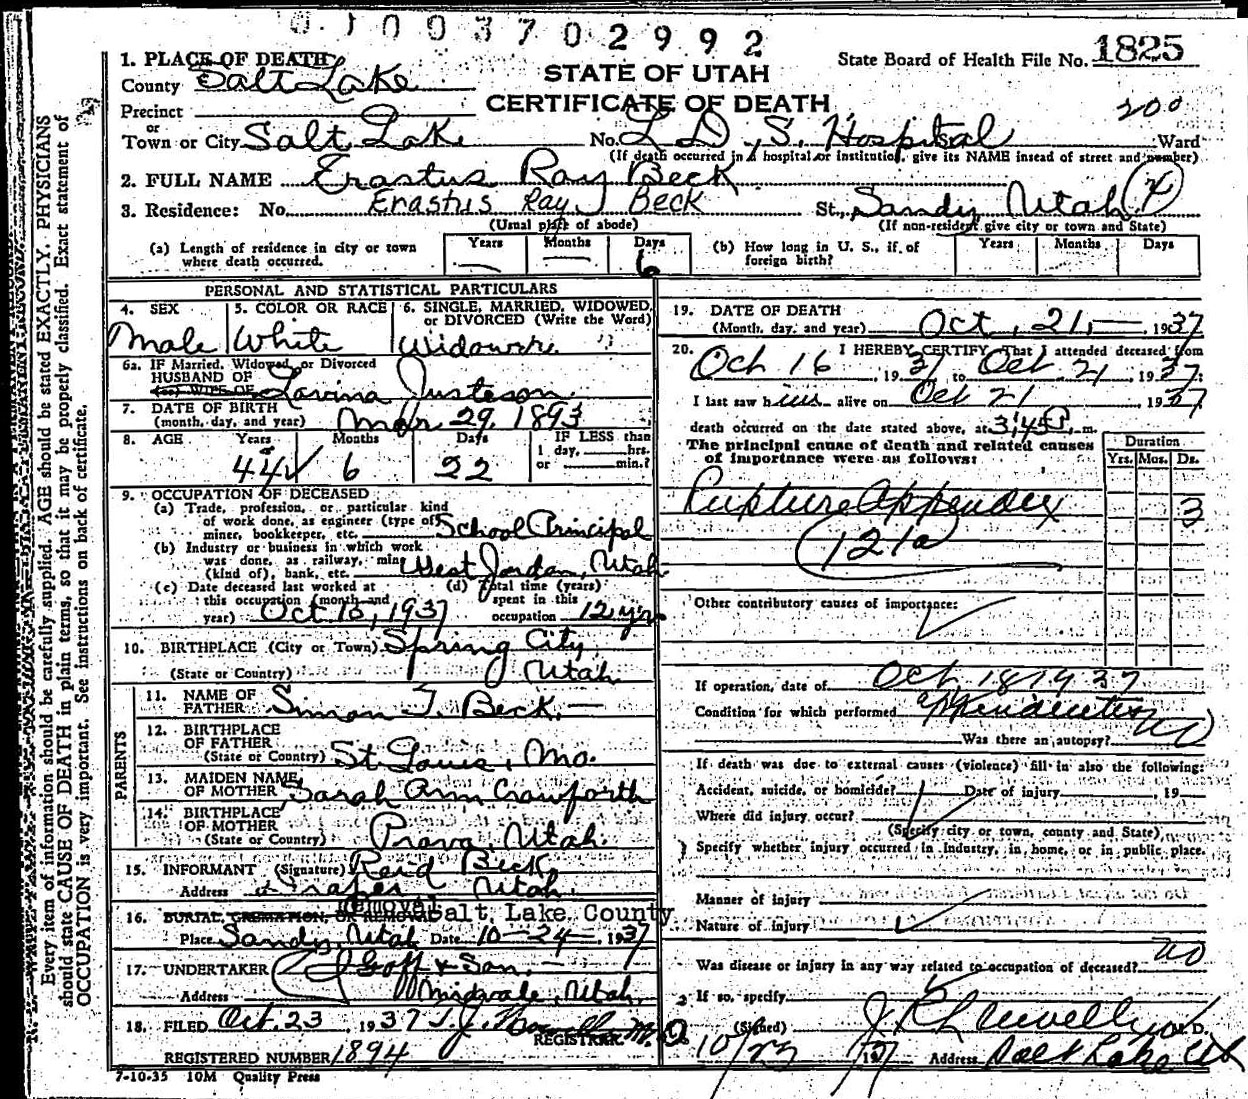 0 1 0 0 3 7 0 2 9 9 2
State Board of Health File No. 1825
STATE OF UTAH
CERTIFICATE OF DEATH
200
1. PLACE OF DEATH
County Salt Lake
Precinct
or
Town or City Salt Lake No. L.D.S. Hospital Ward
(If death occurred in a hospital or institution, give its NAME instead of street and number)
2. FULL NAME Erastus Ray Beck
3. Residence: No. Erastus Ray Beck St., Sandy Utah
(Usual place of abode) (If non-resident give city or town and State)
(a) Length of residence in city or town where death occurred. Years — Months — Days 6
(b) How long in U. S., if of foreign birth? Years Months Days
PERSONAL AND STATISTICAL PARTICULARS
4. SEX Male
5. COLOR OR RACE White
6. SINGLE, MARRIED, WIDOWED, or DIVORCED (Write the Word)
6a. IF Married, Widowed, or Divorced
HUSBAND OF
(or) WIFE OF Lavina Justeson
7. DATE OF BIRTH
(month, day, and year) Mar. 29, 1893
8. AGE Years 44 Months 6 Days 22 IF LESS than 1 day, hrs. or min.?
9. OCCUPATION OF DECEASED
(a) Trade, profession, or particular kind
of work done, as engineer (type of)
miner, bookkeeper, etc. School Principal
(b) Industry or business in which work
was done, as railway, mine
(kind of), bank, etc. West Jordan, Utah
(c) Date deceased last worked at
this occupation (month and
year) 1937
(d) Total time (years)
spent in this
occupation 12 yrs
10. BIRTHPLACE (City or Town) Spring City
(State or Country) Utah
PARENTS
11. NAME OF
FATHER Simon T. Beck
12. BIRTHPLACE
OF FATHER
(State or Country) St Louis, Mo.
13. MAIDEN NAME
OF MOTHER Sarah Ann Crawforth
14. BIRTHPLACE
OF MOTHER
(State or Country) Provo, Utah.
15. INFORMANT (Signature) Reid Beck
Address Draper Utah.
16. BURIAL, CREMATION, OR REMOVAL Removal Salt Lake County
Place Sandy, Utah Date 10-24-, 1937
17. UNDERTAKER Goff & Son.
Address Midvale, Utah.
18. FILED Oct. 23, 1937 M.D.
REGISTRAR.
REGISTERED NUMBER 1894
7-10-35 10M Quality Press
19. DATE OF DEATH
(Month, day, and year) Oct. 21, 1937
20. I HEREBY CERTIFY, That I attended deceased from
Oct 16, 1937 to Oct 21, 1937
I last saw him alive on Oct 21 1937
death occurred on the date stated above, at 3:45 P. m.
The principal cause of death and related causes
of importance were as follows:
Duration
Yrs. Mos. Ds.
Rupture Appendix 3
121a
Other contributory causes of importance:
If operation, date of Oct 18 1937
Condition for which performed appendicitis
Was there an autopsy? no
If death was due to external causes (violence) fill in also the following:
Accident, suicide, or homicide? Date of injury 19
Where did injury occur?
(Specify city or town, county and State)
Specify whether injury occurred in industry, in home, or in public place.
Manner of injury
Nature of injury
Was disease or injury in any way related to occupation of deceased? no
If so, specify
(Signed) M.D.
10/23 1937 Address Salt Lake Ut
Every item of information should be carefully supplied. AGE should be stated EXACTLY. PHYSICIANS
should state CAUSE OF DEATH in plain terms, so that it may be properly classified. Exact statement of
OCCUPATION is very important. See instructions on back of certificate.